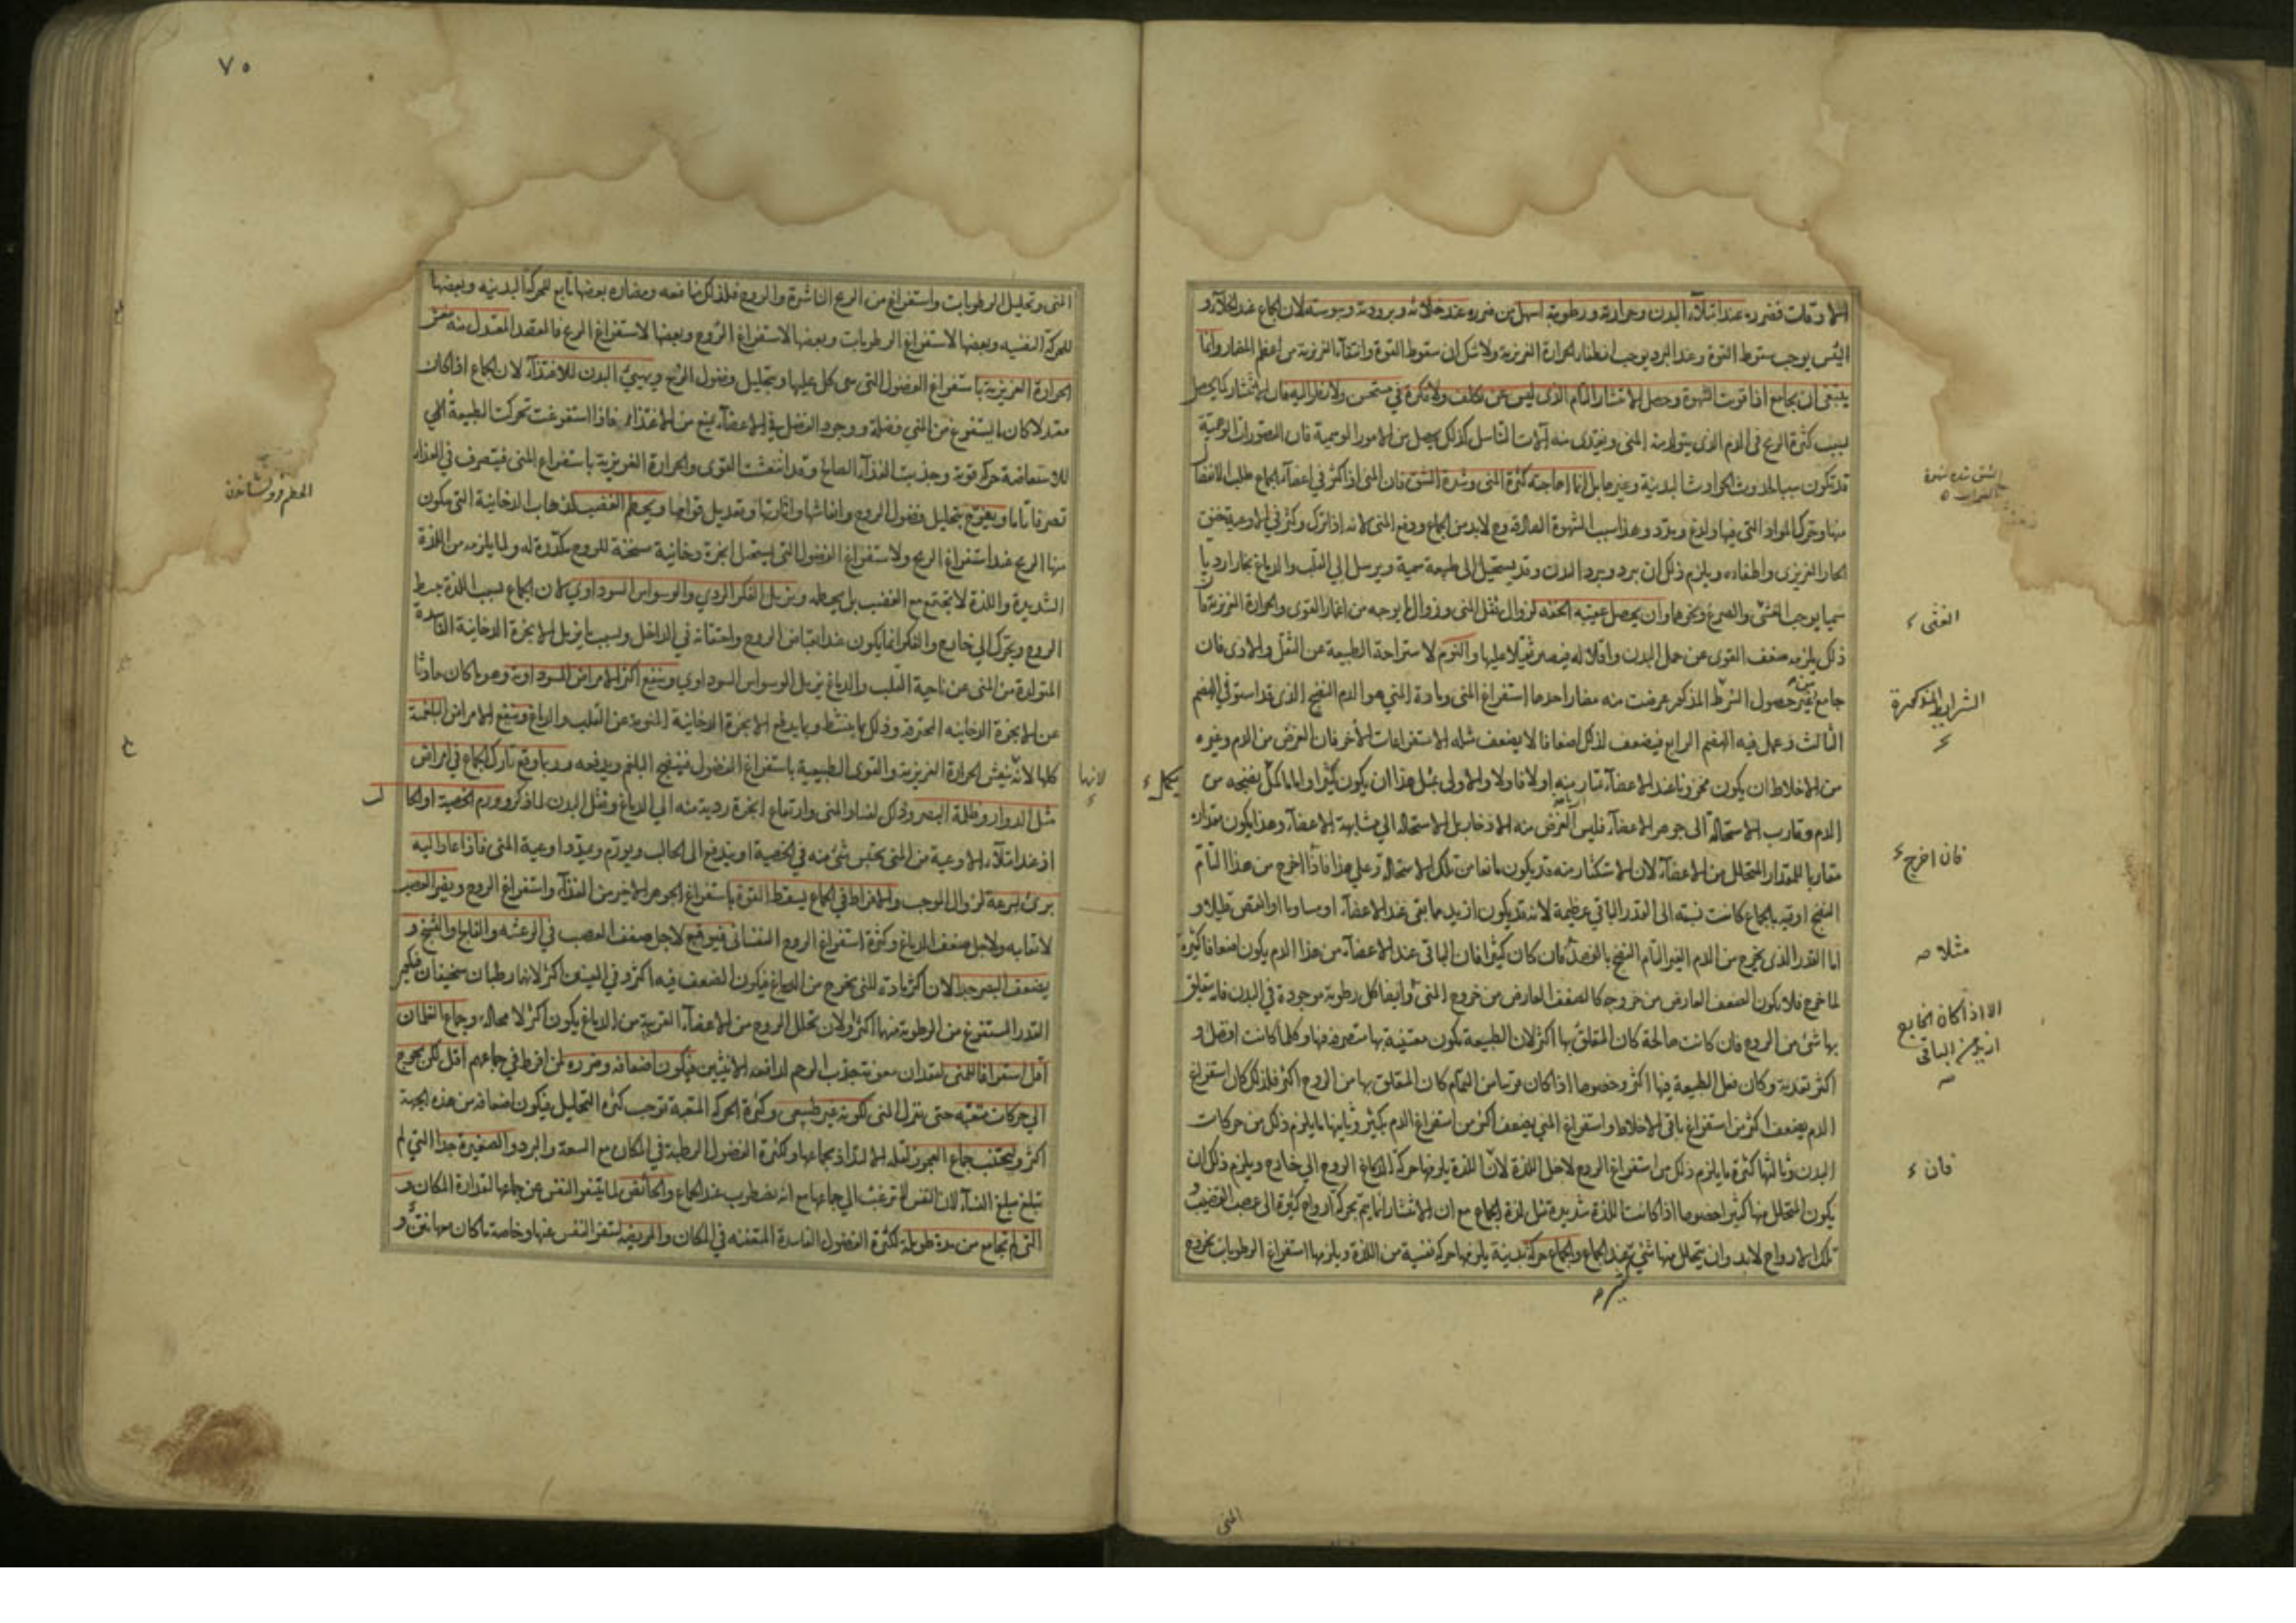 الاوقات فضرره عند امتلاء البدن وحرارته ورطوبته اسهل من ضرره عند خلائه وبرودته ويبوسته لان الجماع عند الخلاء و
اليبس يوجب سقوط القوة وعند البرد يوجب انطفاء الحرارة الغريزية ولا شك ان سقوط القوة وانتفاء الغريزية من اعظم المضار وانما
ينبغى ان يجامع اذا قويت الشهوة وحصل الانتشار التام الذى ليس عن تكلف ولا فكرة في مستحسن ولا نظر اليه فان الانتشار كما يحصل
بسبب كثرة الريح فى الدم الذى يتولد منه المنى ويغتذى منه آلات التناسل كذلك يحصل من الامور الوهمية فان التصورات الوهمية
قد تكون سببا لحدوث الحوادث البدنية وغيرها بل انما اهاجته كثرة المنى وشدة الشبق فان المنى اذا كثر في اعضاء الجماع طلب الانفصا
منها وتحرك المواد التى فيها ولذع ومدد وهذا سبب الشهوة الصادقة وح لا بد من الجماع ودفع المنى لانه اذا ترك وكثر في الاوعية يخنق
الحار الغريزى واطفاه ويلزم ذلك ان يبرد ويبرد البدن وقد يستحيل الى طبيعة سمية ويرسل الى القلب والدماغ بخارا رديا
سميا يوجب الغشى والصرع ونحوهما وان يحصل عقيبه الخفة لزوال ثقل المنى وزوال ما يوجبه من اغمار القوى والحرارة الغريزية
ذلك يلزمه ضعف القوى عن حمل البدن واقلاله فيصير ثقيلا عليها والنوم لاستراحة الطبيعة عن الثقل والاذى فان
جامع بغير حصول الشرط المذكور عرضت منه مضار احدها استفراغ المنى ومادة المنى هو الدم النضيج الذى قد استوفى الهضم
الثالث وعمل فيه الهضم الرابع فيضعف لذلك اضعافا لا يضعف مثله الاستفراغات الاخر فان الغرض من الدم وغيره
من الاخلاط ان يكون مخزونا عند الاعضاء تتناوبه اولا فاولا والاولى بمثل هذا ان يكون كثيرا واما ما كمل نضجه من
الدم وقارب الاستحالة الى جوهر الاعضاء فليس الغرض منه الادخار بل الاستحالة الى مشابهة الاعضاء وهذا يكون مقداره
مقاربا للمقدار المتحلل من الاعضاء لان الاستكثار منه قد يكون مانعا من تلك الاستحالة وعلى هذا فاذا اخرج من هذا التام
النضج اوقية بالجماع كانت نسبته الى القدر الباقى عظيمة لانه قد يكون ازيد مما بقى عند الاعضاء او مساويا او انقص قليلا و
اما القدر الذى يخرج من الدم الغير التام النضج بالفصد فان كان كثيرا فان الباقى عند الاعضاء من هذا الدم يكون اضعافا كثيرة
لما خرج فلا يكون الضعف العارض من خروجه كالضعف العارض من خروج المنى وايضا كل رطوبة موجودة في البدن فانه يتعلق
بها شئ من الروح فان كانت صالحة كان المتعلق بها اكثر لان الطبيعة تكون معتنية بها متصرفة فيها وكلما كانت افضل و
اكثر تغذية وكان فعل الطبيعة فيها اكثر وخصوصا اذا كان قريبا من التمام كان المتعلق بها من الروح اكثر فلذلك كان استفراغ
الدم يضعف اكثر من استفراغ باقى الاخلاط واستفراغ المنى يضعف اكثر من استفراغ الدم بكثير وثانيها ما يلزم ذلك من حركات
البدن وثالثها كثرة ما يلزم ذلك من استفراغ الروح لاجل اللذة لان اللذة يلزمها حركة الدماغ الروح الى خارج ويلزم ذلك ان
يكون المتحلل منها كثيرا خصوصا اذا كانت اللذة شديدة مثل لذة الجماع مع ان الانتشار انما يتم بحركة ارواح كثيرة الى عصب القضيب و
تلك الارواح لا بد وان يتحلل منها شئ عند الجماع والجماع حركة بدنية يلزمها حركة نفسية من اللذة ويلزمها استفراغ الرطوبات بخروج
الغشى
الشرايط المذكورة
يكمل
فان اخرج
مثلا صح
الا اذا كان الخارج
ازيد من الباقى
صح
فان
كثير
المنى
٧٥
المنى وتحليل الرطوبات واستفراغ من الريح الناشرة والروح فلذلك منافعه ومضاره بعضها تابع للحركة البدنيه وبعضها
للحركة النفسيه وبعضها لاستفراغ الرطوبات وبعضها لاستفراغ الروح وبعضها لاستفراغ الريح فالمعتدل منه ينعش
الحرارة الغريزية باستفراغ الفضول التى هى كل عليها وبتحليل فضول الروح ويهيئ البدن للاغتذاء لان الجماع اذا كان
معتدلا كان ما يستفرغ من المني فضلة ووجود الفضل في الاعضاء يمنع من الاغتذاء فاذا استفرغت تحركت الطبيعة الى
الاستعاضة حركة قوية وجذبت الغذاء الصالح وقد انتعشت القوى والحرارة الغريزية باستفراغ المنى فيتصرف في الغذاء
تصرفا تاما ويفرح بتحليل فضول الروح وانعاشها واثارتها وتعديل قوامها ويحطم الغضب لذهاب الدخانية التى يكون
منها الريح عند استفراغ الريح ولاستفراغ الفضول التى يستحيل ابخرة دخانية مسخنة للروح مكدرة له ولما يلزمه من اللذة
الشديدة واللذة لا تجتمع مع الغضب بل يحطه ويزيل الفكر الردي والوسواس السوداوي لان الجماع بسبب اللذة يبسط
الروح ويحركه الى خارج والفكر انما يكون عند انقباض الروح واحتقانه في الداخل وبسبب ما يزيل الابخرة الدخانية الفاسدة
المتولدة من المنى عن ناحية القلب والدماغ يزيل الوسواس السوداوي وينفع اكثر الامراض السوداوية وهو ما كان حادثا
عن الابخرة الدخانيه المحترقة وذلك بما ينشط وبما يدفع الابخرة الدخانية المنوية عن القلب والدماغ وينفع الامراض البلغمية
كلها لانه ينعش الحرارة الغريزية والقوى الطبيعية باستفراغ الفضول فينضج البلغم ويدفعه وربما وقع تارك الجماع في امراض
مثل الدوار وظلمة البصر وذلك لفساد المنى وارتفاع ابخرة ردية منه الى الدماغ وثقل البدن لما ذكر وورم الخصية او الحا
اذ عند امتلاء الاوعية من المنى يحتبس شئ منه في الخصية او يندفع الى الحالب ويورم ويمدد اوعية المنى فاذا عاد اليه
برئ بسرعة لزوال الموجب والافراط في الجماع يسقط القوة باستفراغ الجوهر الاخير من الغذاء واستفراغ الروح ويضر العصب
لاتعابه ولاجل ضعف الدماغ وكثرة استفراغ الروح النفسانى فيوقع لاجل ضعف العصب في الرعشة والفالج والتشنج و
يضعف البصر جدا لان اكثر مادة المنى يخرج من الدماغ فيكون الضعف فيه اكثر وفي العينين اكثر لانها رطبتان سخيفتان فيكون
القدر المستفرغ من الرطوبة منها اكثر ولان تحلل الروح من الاعضاء القريبة من الدماغ يكون اكثر لا محالة وجماع الغلمان
اقل استفراغا للمنى لفقدان معونة جذب الرحم لدافعه الانثيين فيكون اضعافه وضرره لمن افرط في جماعهم اقل لكن يحوج
الى حركات متعبه حتى ينزل المنى لكونه غير طبيعى وكثرة الحركة المتعبة توجب كثرة التحليل فيكون اضعافه من هذه الجهة
اكثر وليجتنب جماع العجوز لقلة الالتذاذ بجماعها ولكثرة الفضول الرطبة في المكان مع السعة والبرد والصغيرة جدا التي لم
تبلغ مبلغ النساء لان النفس لا ترغب الى جماعها مع انه تضطرب عند الجماع والحائض لما ينفر النفس عن جماعها لقذارة المكان و
التى لم تجامع من مدة طويلة لكثرة الفضول الفاسدة المتعفنه في المكان والمريضة لتنفر النفس عنها وخاصة ما كان بها نتن و
لانها